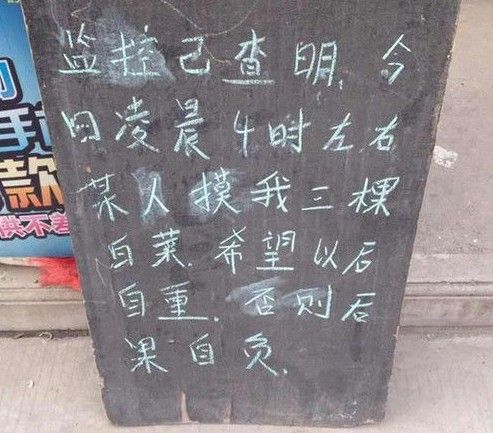 监控己查明,今
日凌晨4时左右
某人摸我三棵
白菜.希望以后
自重.否则后
果自负.
手
款
供不